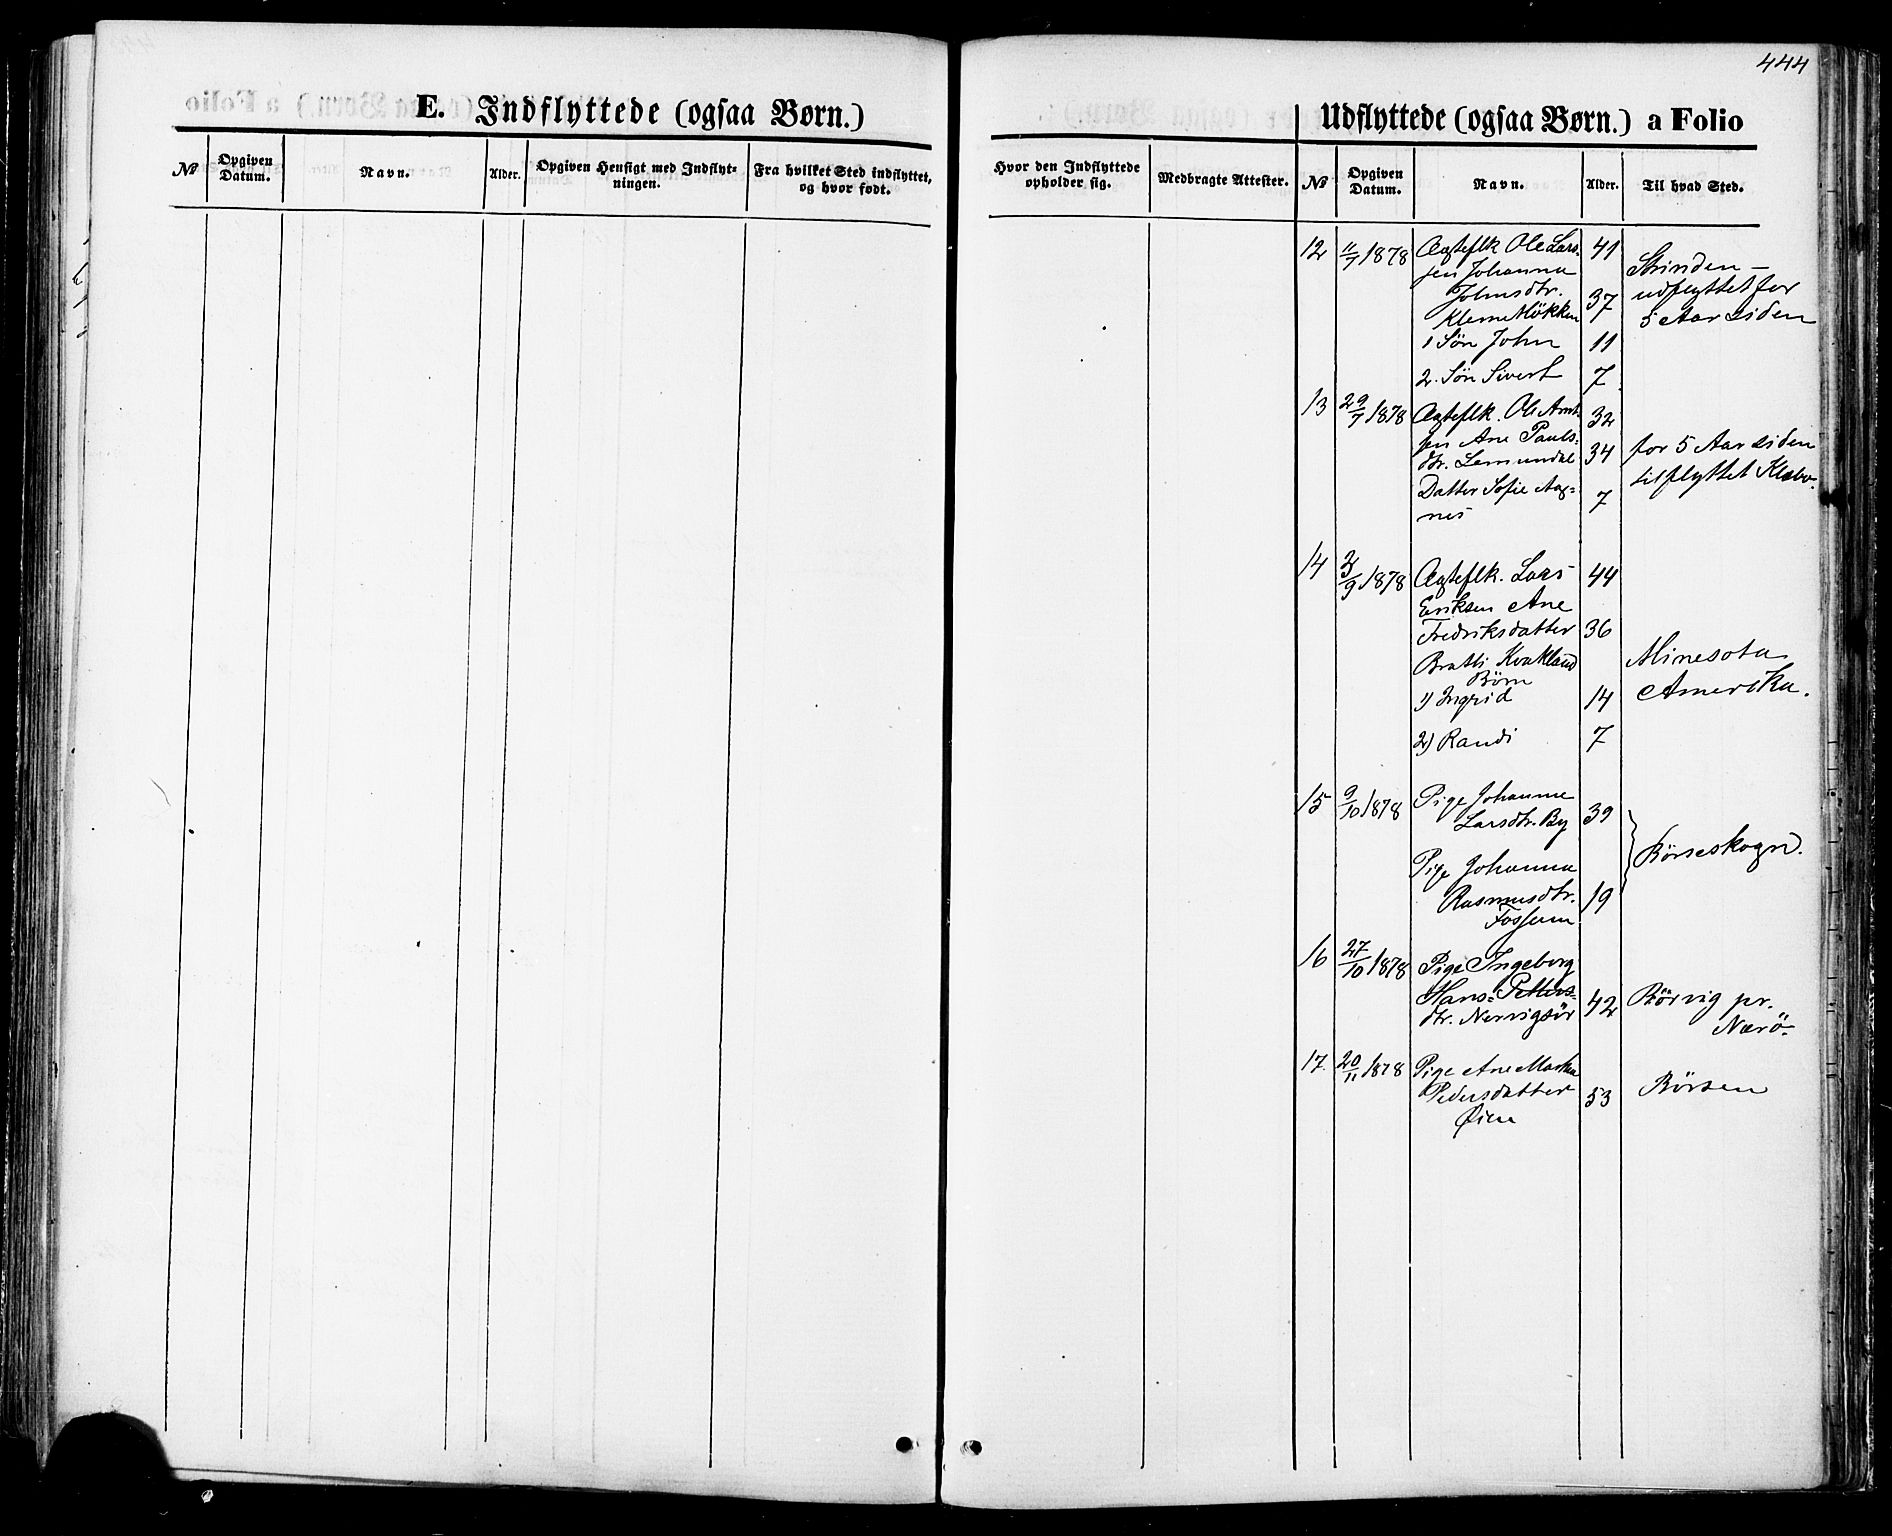 444
E. Indflyttede (ogsaa Børn.)
Udflyttede (ogsaa Børn.) a Folio
№
Opgiven Datum.
Navn.
Alder.
Opgiven Hensigt med Indflyt-
ningen.
Fra hvilket Sted indflyttet,
og hvor født.
Hvor den Indflyttede
opholder sig.
Medbragte Attester.
№
Opgiven Datum.
Navn.
Alder.
Til hvad Sted.
12 11/7 1878 Ægteflk Ole Lars- 41
sen Johanna Strinden -
Johnsdtr. 37 udflyttet for
Klemethökken 5 Aar siden
1 Sön John 11
2. Sön Sivert 7
13 29/7 1878 Ægteflk. Ole Arnt- 32
sen Ane Pauls- for 5 Aar siden
dtr. Lemundal 34 tilflyttet Klæbo.
Datter Sofie Aag- 7
nes
14 /9 1878 Ægteflk. Lars 44
Eriksen Ane
Fredriksdatter 36
Bratli Kvakland Minesota
Börn Amerika.
1) Ingrid 14
2) Randi 7
15 9/10 1878 Pige Johanne
Larsdtr. By 39
Pige Johanna Börseskogn.
Rasmusdtr. 19
Fossum
16 27/10 1878 Pige Ingeborg
Hans- Petters- 42 Rörvig pr.
dtr. Nervigsör Nærö.
17. 20/11 1878 Pige Ane Martha
Pedersdatter 53 Börsen
Øien